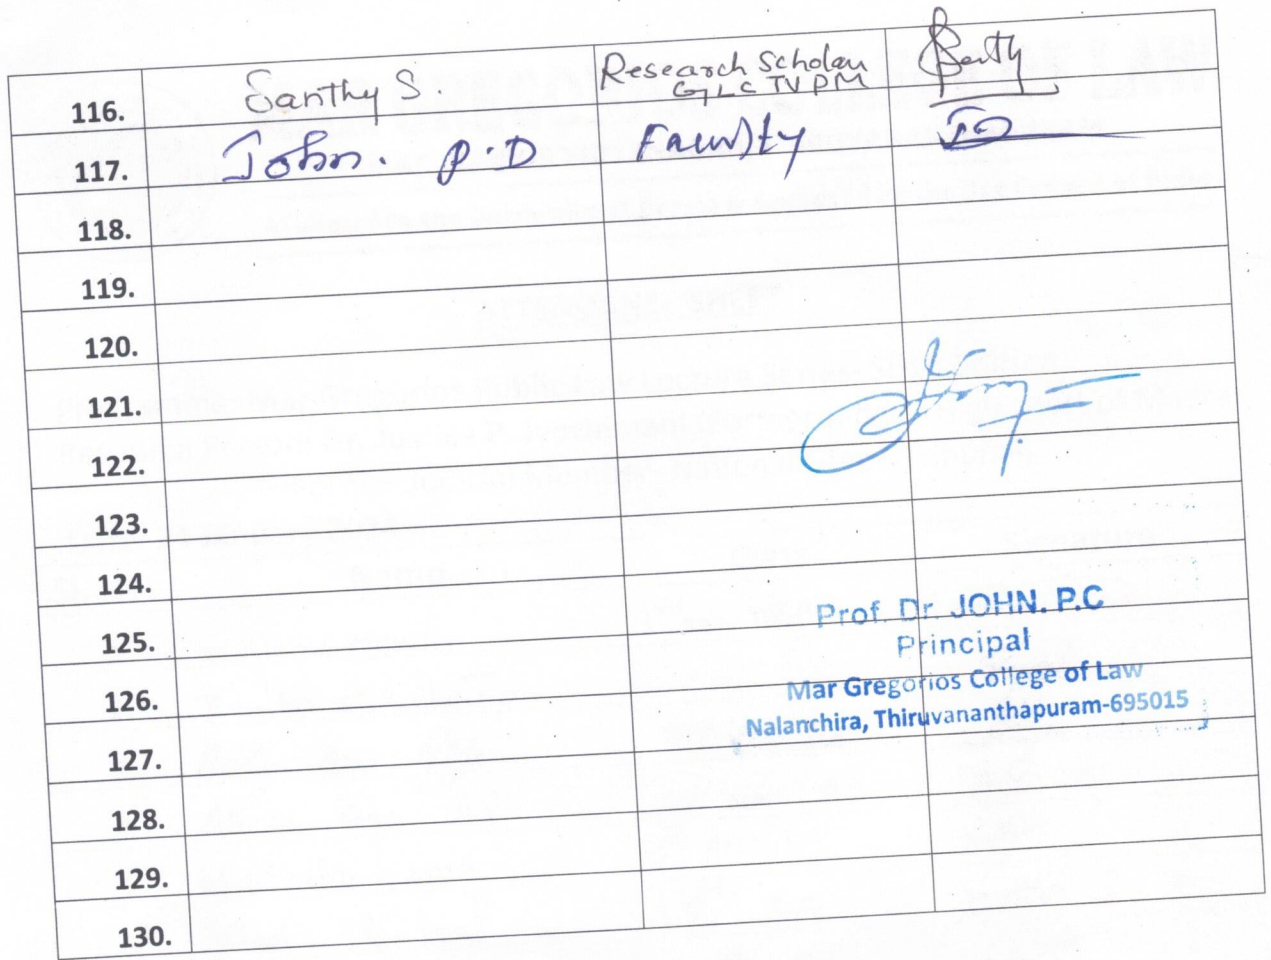 116. Santhy S. Research Scholar GLC TVPM
117. John. P.D Faculty
118.
119.
120.
121.
122.
123.
124.
125.
126.
127.
128.
129.
130.
Prof. Dr. JOHN. P.C
Principal
Mar Gregorios College of Law
Nalanchira, Thiruvananthapuram-695015